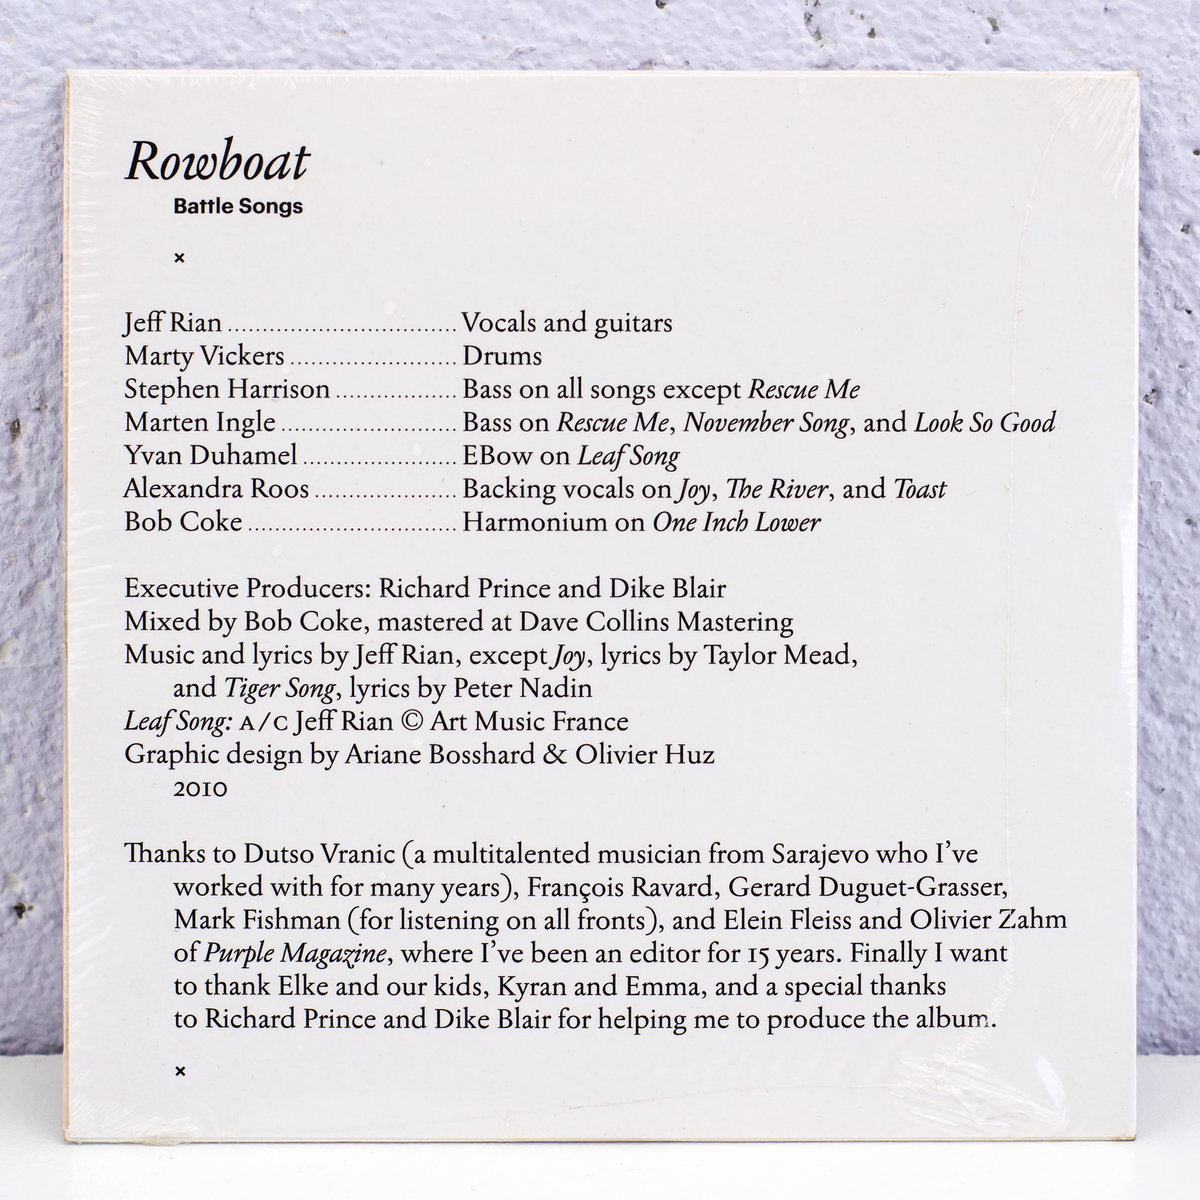 Rowboat
Battle Songs
×
Jeff Rian ............................ Vocals and guitars
Marty Vickers .................... Drums
Stephen Harrison ............... Bass on all songs except Rescue Me
Marten Ingle ..................... Bass on Rescue Me, November Song, and Look So Good
Yvan Duhamel ................... EBow on Leaf Song
Alexandra Roos ................. Backing vocals on Joy, The River, and Toast
Bob Coke ......................... Harmonium on One Inch Lower
Executive Producers: Richard Prince and Dike Blair
Mixed by Bob Coke, mastered at Dave Collins Mastering
Music and lyrics by Jeff Rian, except Joy, lyrics by Taylor Mead,
and Tiger Song, lyrics by Peter Nadin
Leaf Song: A/C Jeff Rian © Art Music France
Graphic design by Ariane Bosshard & Olivier Huz
2010
Thanks to Dutso Vranic (a multitalented musician from Sarajevo who I've
worked with for many years), François Ravard, Gerard Duguet-Grasser,
Mark Fishman (for listening on all fronts), and Elein Fleiss and Olivier Zahm
of Purple Magazine, where I've been an editor for 15 years. Finally I want
to thank Elke and our kids, Kyran and Emma, and a special thanks
to Richard Prince and Dike Blair for helping me to produce the album.
×